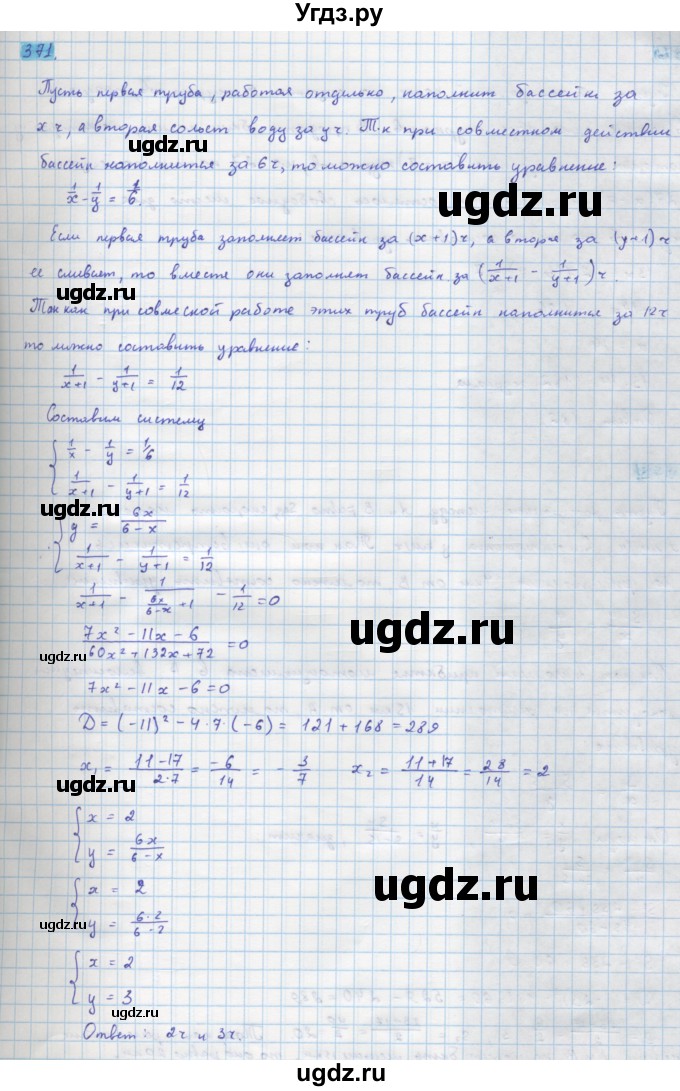 Угдз.ру
371.
Пусть первая труба, работая отдельно, наполнит бассейн за
x ч, а вторая сольет воду за y ч. Т.к при совместном действии
бассейн наполнится за 6 ч, то можно составить уравнение:
1/x - 1/y = 1/6.
Если первая труба заполняет бассейн за (x+1) ч, а вторая за (y+1) ч
ее сливает, то вместе они заполнят бассейн за (1/(x+1) - 1/(y+1)) ч.
Так как при совмесной работе этих труб бассейн наполнится за 12 ч
то можно составить уравнение:
1/(x+1) - 1/(y+1) = 1/12
Составим систему
{ 1/x - 1/y = 1/6
1/(x+1) - 1/(y+1) = 1/12
{ y = 6x/(6-x)
1/(x+1) - 1/(y+1) = 1/12
1/(x+1) - 1/(6x/(6-x) + 1) - 1/12 = 0
(7x² - 11x - 6)/(60x² + 132x + 72) = 0
7x² - 11x - 6 = 0
D = (-11)² - 4·7·(-6) = 121 + 168 = 289
x₁ = (11-17)/(2·7) = -6/14 = -3/7 x₂ = (11+17)/14 = 28/14 = 2
{ x = 2
y = 6x/(6-x)
{ x = 2
y = (6·2)/(6-2)
{ x = 2
y = 3
Ответ: 2ч и 3ч.
ugdz.ru
ugdz.ru
ugdz.ru
ugdz.ru
ugdz.ru
ugdz.ru
ugdz.ru
ugdz.ru
ugdz.ru
ugdz.ru
ugdz.ru